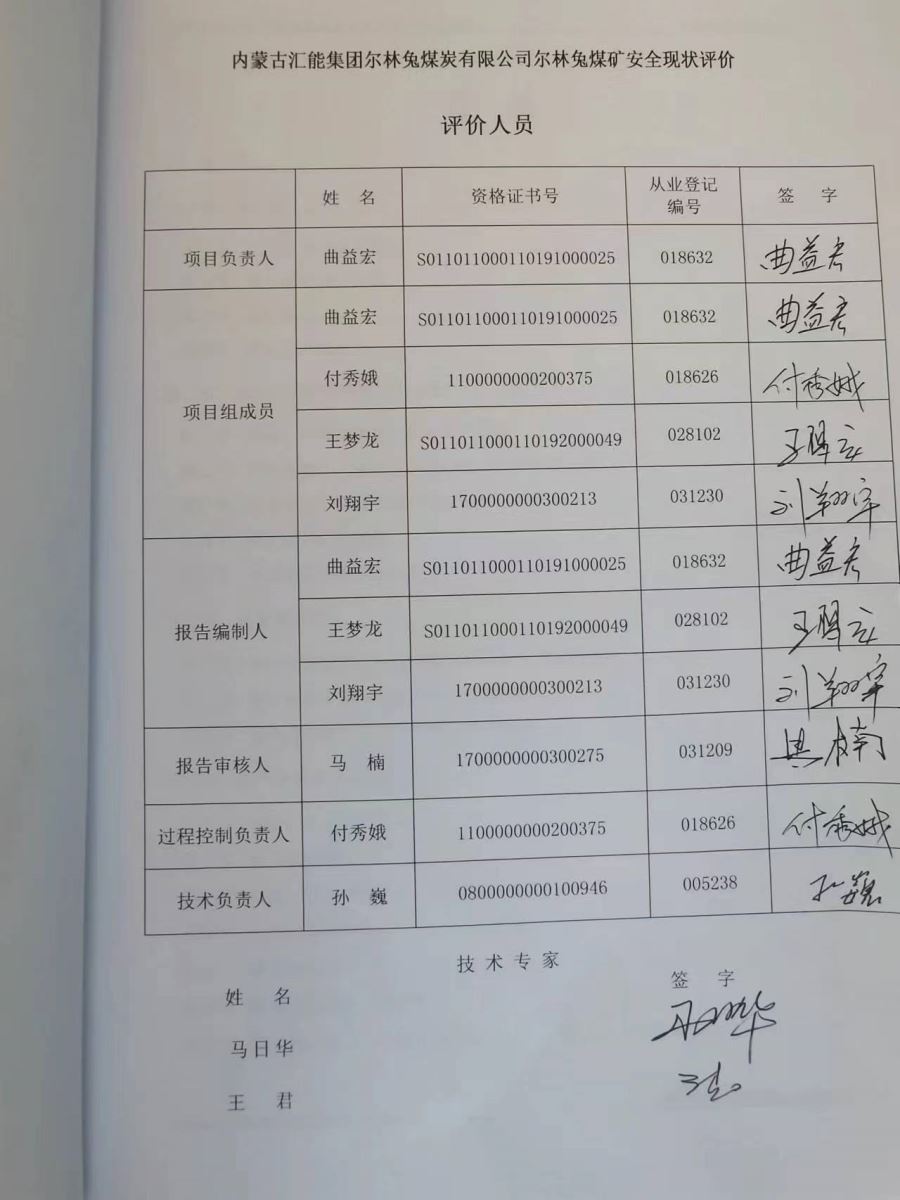 内蒙古汇能集团尔林兔煤炭有限公司尔林兔煤矿安全现状评价
评价人员
姓 名 资格证书号 从业登记编号 签 字
项目负责人 曲益宏 S011011000110191000025 018632 曲益宏
项目组成员 曲益宏 S011011000110191000025 018632 曲益宏
付秀娥 1100000000200375 018626 付秀娥
王梦龙 S011011000110192000049 028102
刘翔宇 1700000000300213 031230 刘翔宇
报告编制人 曲益宏 S011011000110191000025 018632 曲益宏
王梦龙 S011011000110192000049 028102
刘翔宇 1700000000300213 031230 刘翔宇
报告审核人 马 楠 1700000000300275 031209 马楠
过程控制负责人 付秀娥 1100000000200375 018626 付秀娥
技术负责人 孙 巍 0800000000100946 005238 孙巍
技术专家
姓 名 签 字
马日华
王 君